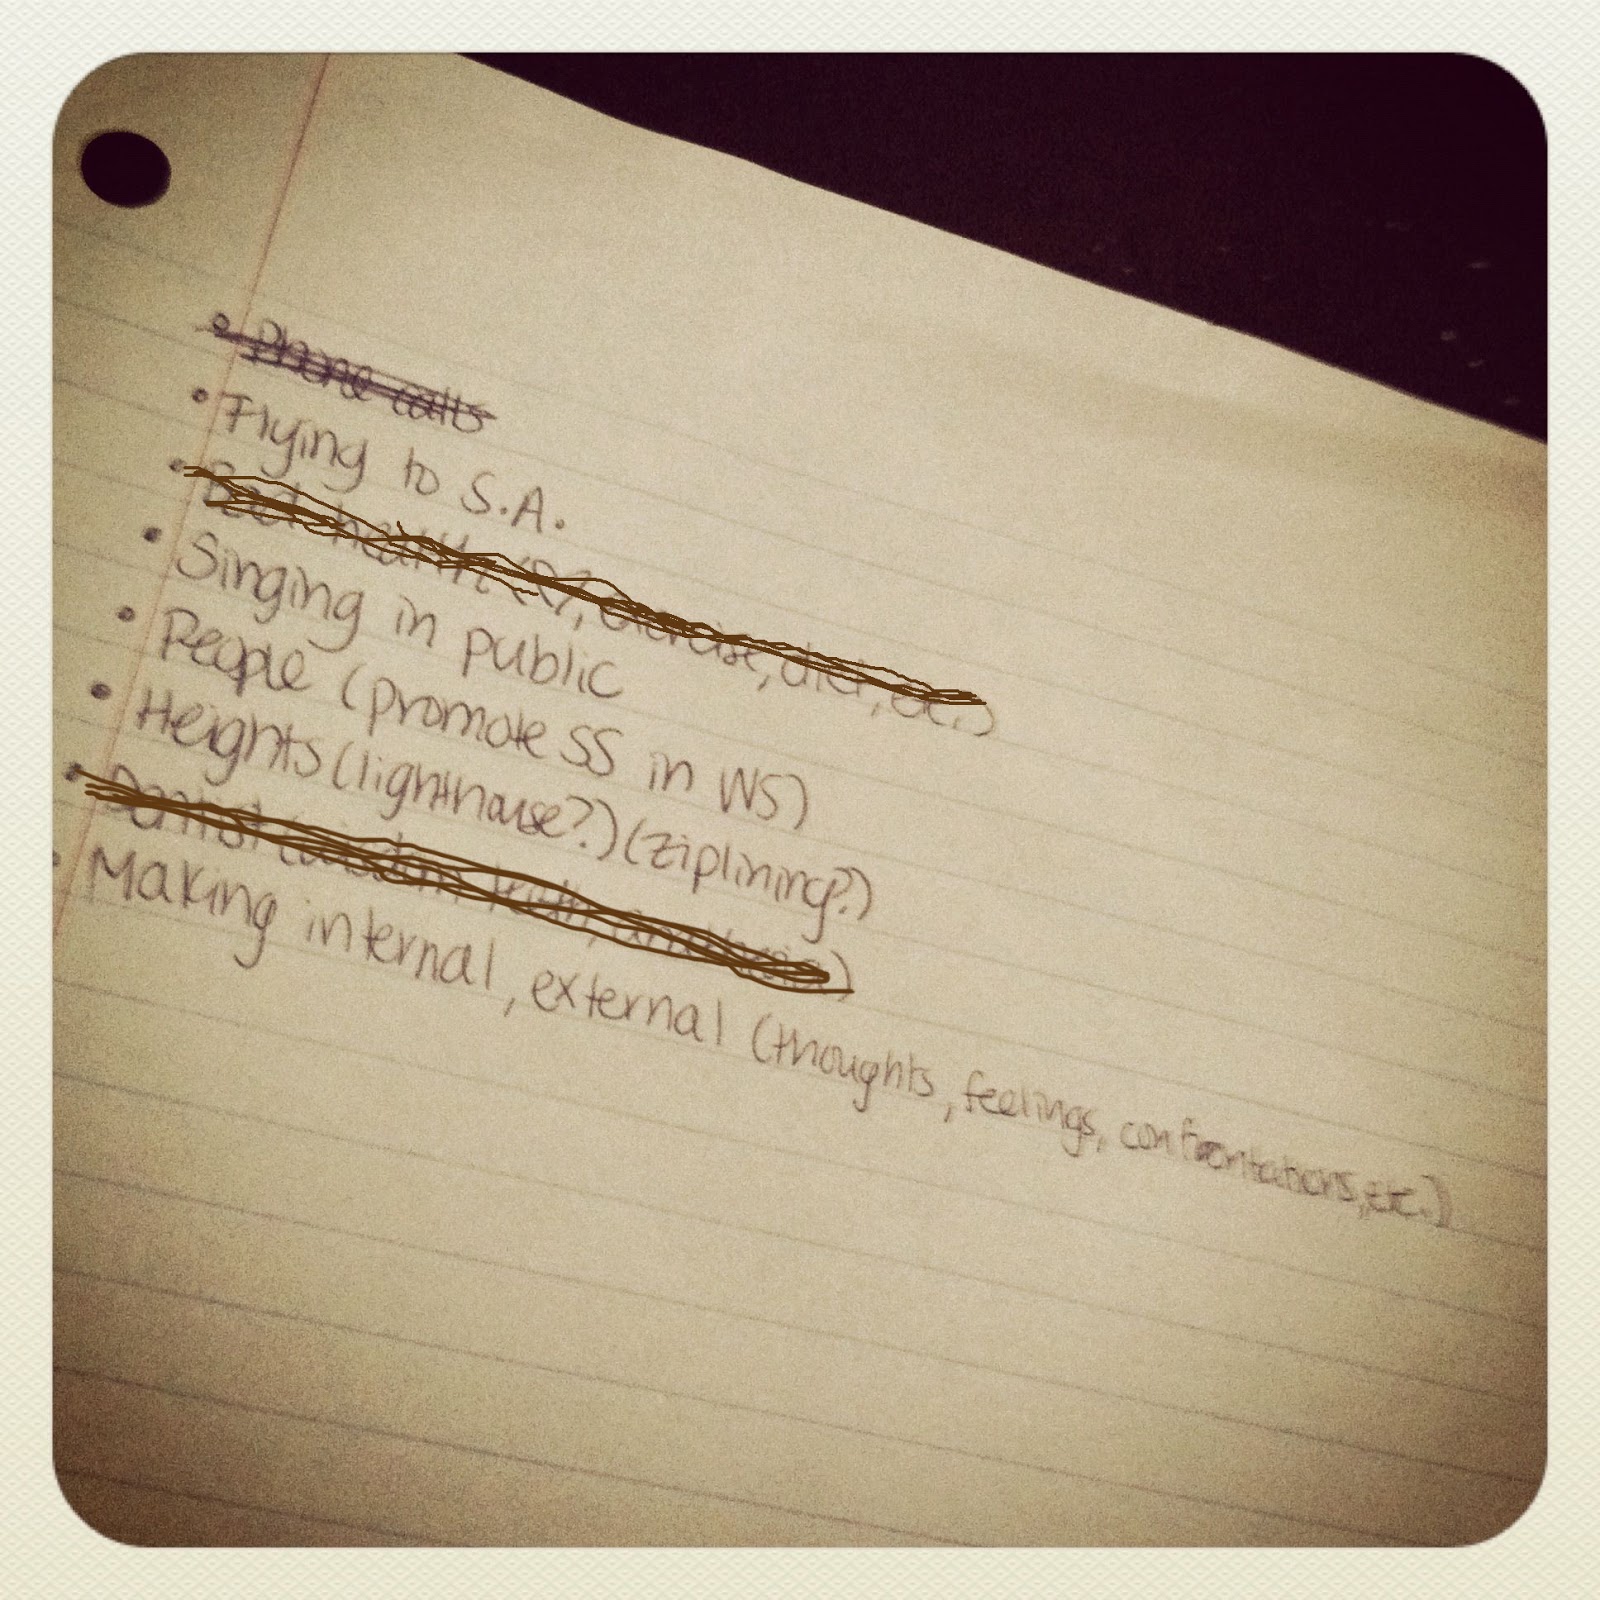 • Phone calls
• Flying to S.A.
• Bad health (R?, exercise, diet, etc.)
• Singing in public
• People (promote SS in WS)
• Heights (lighthouse?) (ziplining?)
• Dentist (wisdom teeth, )
• Making internal, external (thoughts, feelings, confrontations, etc.)